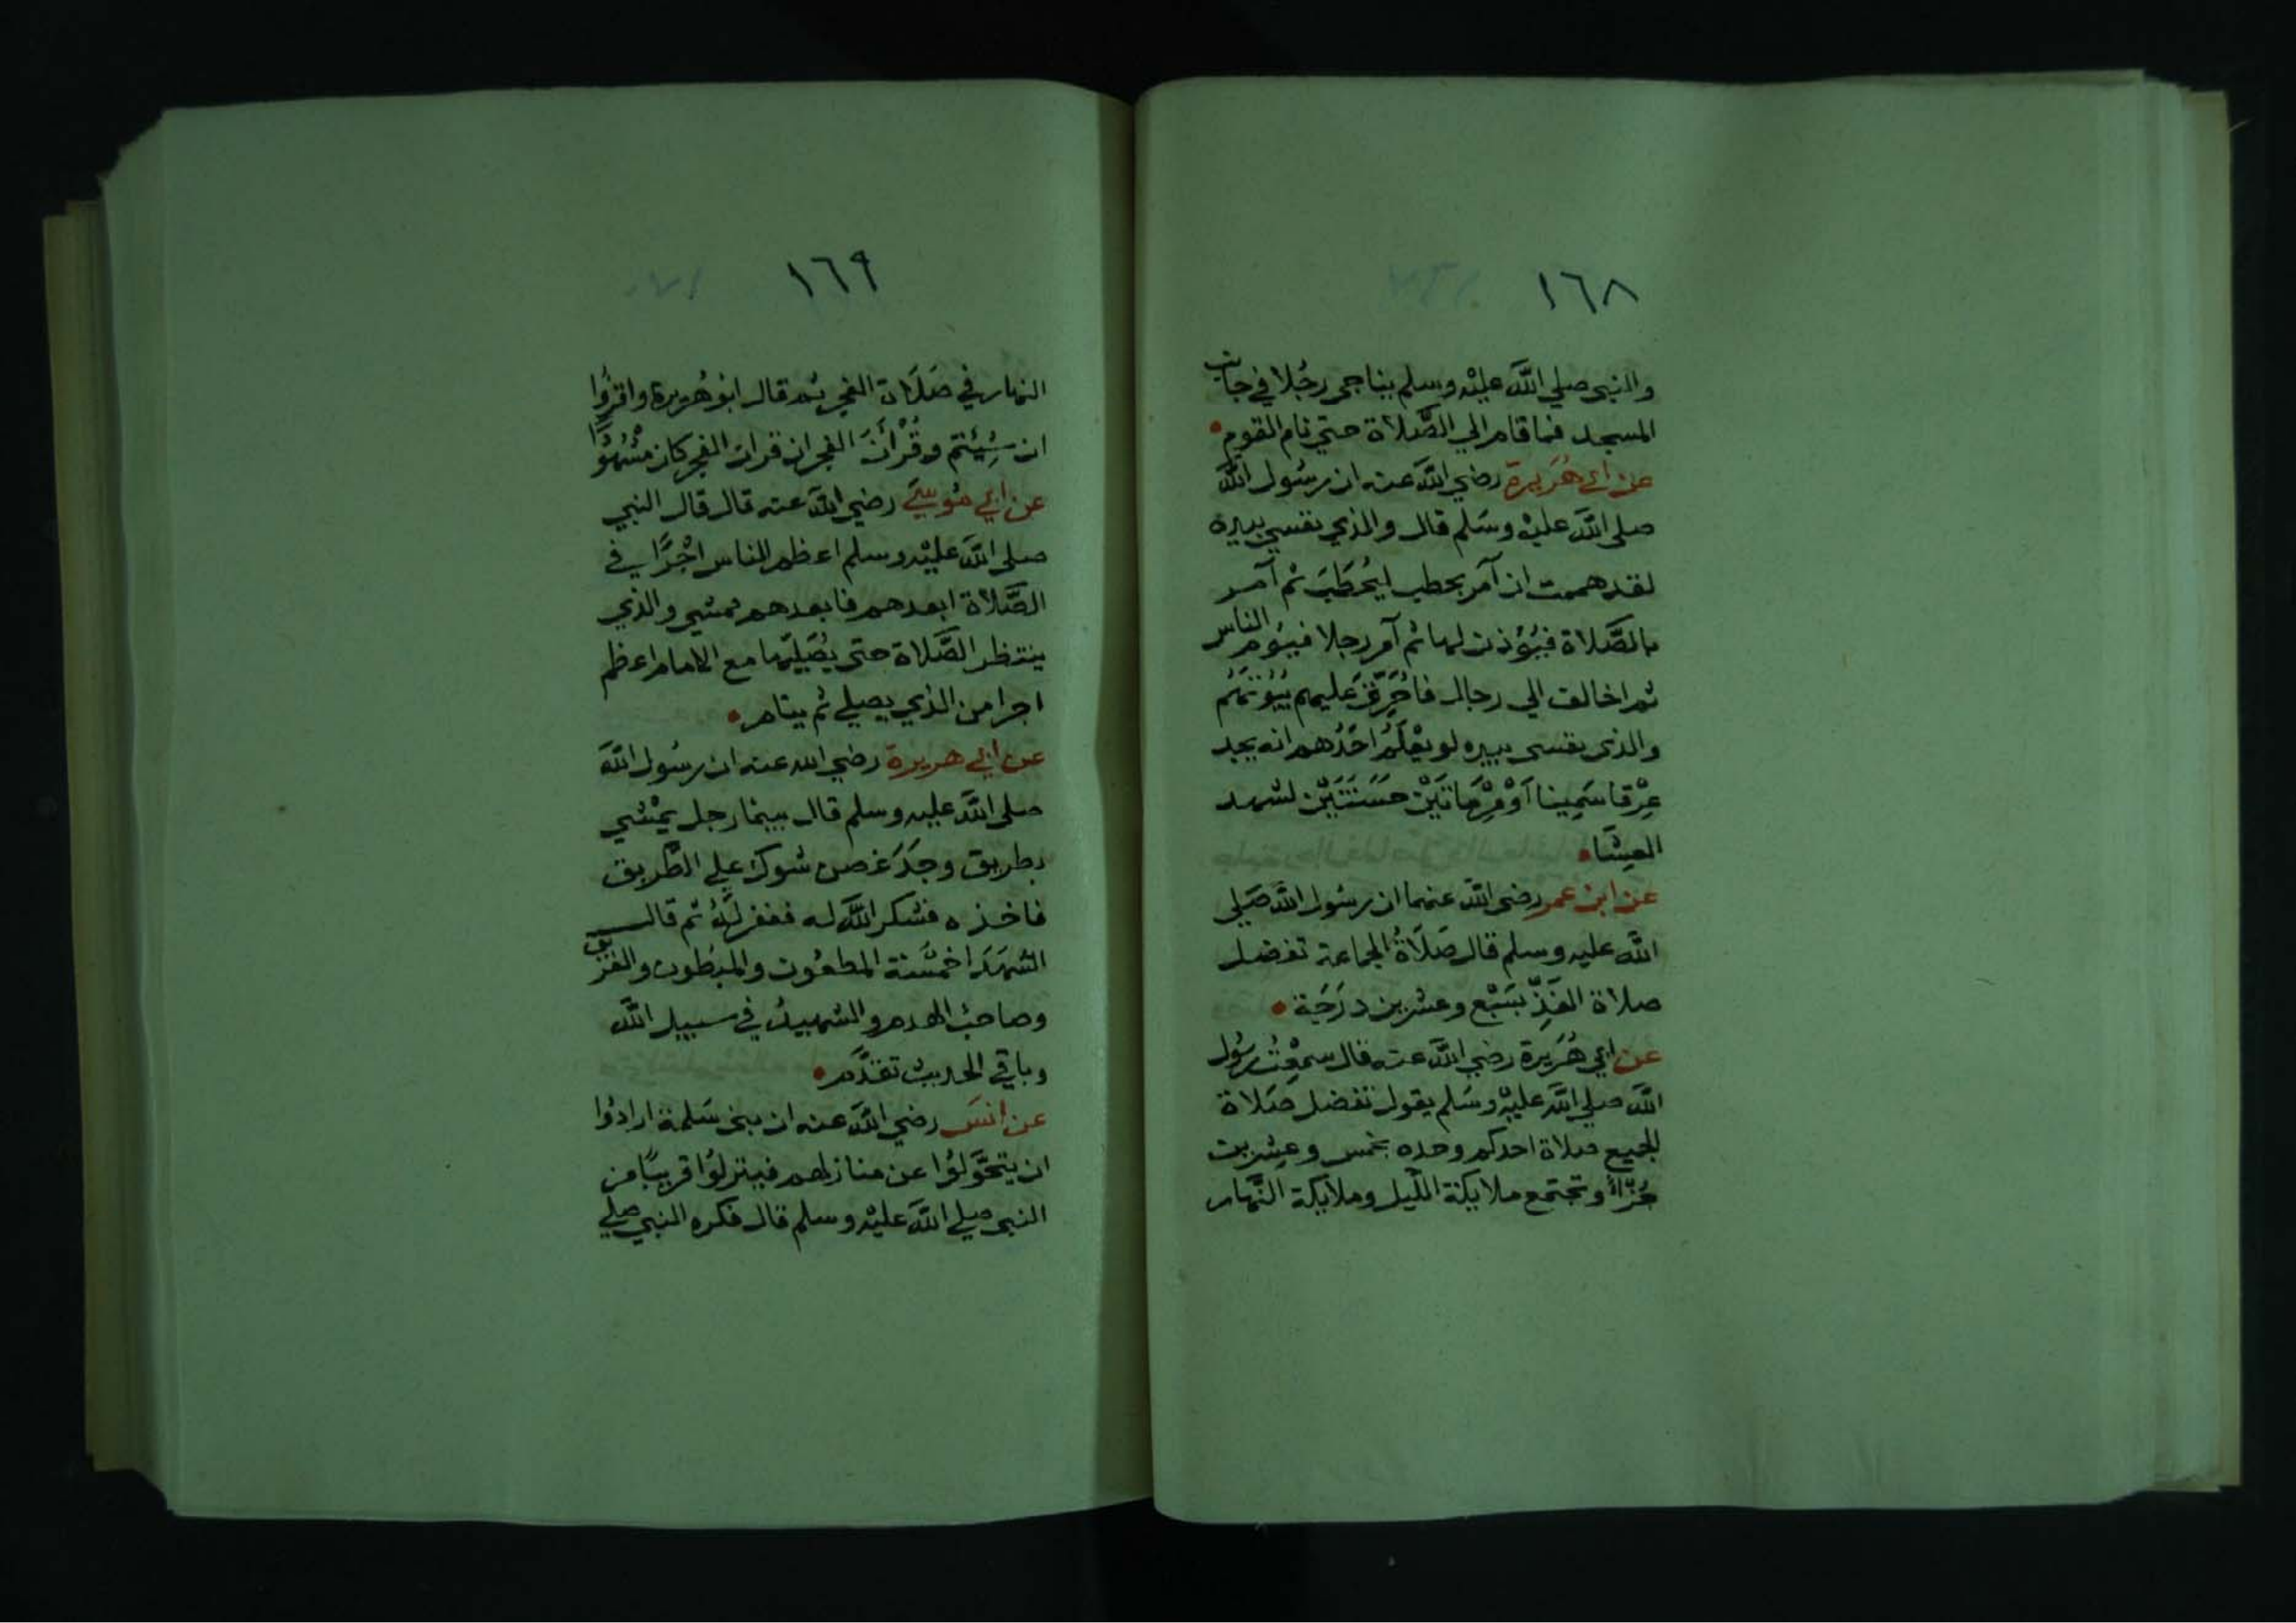 ١٦٨
والنبي صلي اللَّه عليْه وسلم يناجي رجُلا في جانب
المسجد فما قام الي الصَّلاة حتي نام القوم
عن ابي هُرَيرة رضي اللَّه عنه ان رسُول اللَّه
صلى اللَّه عليْه وسَلم قال والذي نفسي بيده
لقد هممت ان آمر بحطب ليُحْطَبَ ثم آمر
بالصَّلاة فيُؤذن لها ثم آمر رجلا فيؤم الناس
ثم اخالف الي رجال فاُحَرِّقَ عليهم بُيُوتَهُم
والذي نفسي بيده لو يعْلَمُ احَدُهم انه يجد
عِرْقا سَمِينا اَوْ مِرْمَاتَيْن حَسَنَتَيْن لشهد
العِشَا
عن ابن عمر رضي اللَّه عنهما ان رسُول اللَّه صَلي
اللَّه عليه وسلم قال صَلَاةُ الجماعة تفضل
صلاة الفَذِّ بسَبْع وعشرين دَرَجَة
عن ابي هُرَيرة رضي اللَّه عنه قال سمعْتُ رسُول
اللَّه صلي اللَّه عليْه وسَلم يقول تفضل صَلاة
الجميع صلاة احدكم وحده بخمس وعِشرين
جُزْأً وتجتمع ملايكة اللَّيل وملايكة النَّهار
١٦٩
النهار في صَلَاة الفجر ثم قال ابُو هُريرة واقرؤا
ان شِيئتم وقُرْآنَ الفجر ان قران الفجر كان مشْهُودًا
عن اَبي مُوسيَ رضي اللَّه عنه قال قال النبي
صلى اللَّه عليْه وسلم اعظم الناس اجْرًا في
الصَّلاة ابعدهم فابعدهم ممشي والذي
ينتظر الصَّلاة حتى يُصَليَها مع الامام اعظم
اجرا من الذي يصلي ثم ينام
عن ابي هريرة رضي الله عنه ان رسُول اللَّه
صلى اللَّه عليه وسلم قال بينما رجل يمْشي
بطريق وجَدَ غصن شوك علي الطَّريق
فاخذه فشكر اللَّه له فغفر لَهُ ثم قال
الشهَدَا خمْسَة المطعُون والمبطُون والغرق
وصاحبُ الهدم والشهيدُ في سبيل اللَّه
وباقي الحديث تقدَّم
عن انسَ رضي اللَّه عنه ان بني سَلمة ارادُوا
ان يتحَوَّلوُا عن منازلهم فينزلوُا قريبًا من
النبي صلي اللَّه عليْه وسلم قال فكره النبي صلي